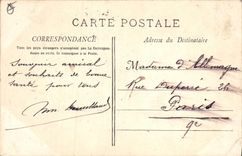 CARTE POSTALE
CORRESPONDANCE
Tous les pays étrangers n'acceptent pas la Correspon-
dance au recto. (Se renseigner à la Poste).
Adresse du Destinataire
Souvenir amical
et souhaits de bonne
santé pour tous
Madame d'Allemagne
Rue Duperré 24
Paris
9e